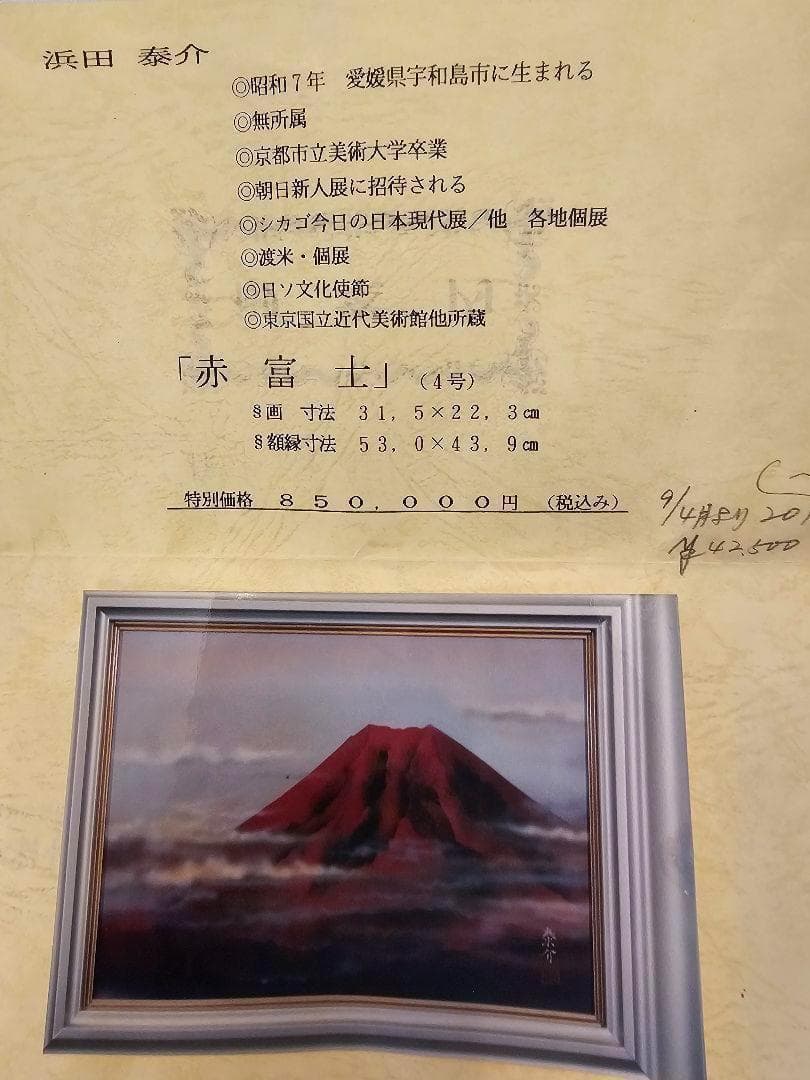 浜田 泰介
◎昭和7年 愛媛県宇和島市に生まれる
◎無所属
◎京都市立美術大学卒業
◎朝日新人展に招待される
◎シカゴ今日の日本現代展／他 各地個展
◎渡米・個展
◎日ソ文化使節
◎東京国立近代美術館他所蔵
「赤 富 士」（4号）
§画 寸法 31，5×22，3㎝
§額縁寸法 53，0×43，9㎝
特別価格 850，000円 （税込み）
9/4月より 20
￥42,500
泰介